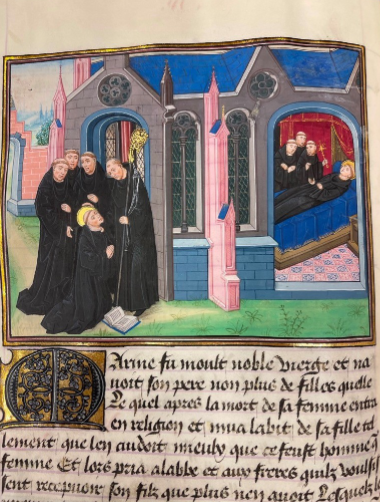 Marine fu moult noble vierge et na
uoit son pere non plus de filles quelle
Le quel apres la mort de sa femme entra
en religion et mua labit de sa fille tel
lement que len cuidoit mieulx que ce feust homme q̄
femme Et lors pria alabbe et aux freres quilz voulsis
sent receuoir son filz que plus nen auoit Lesquels